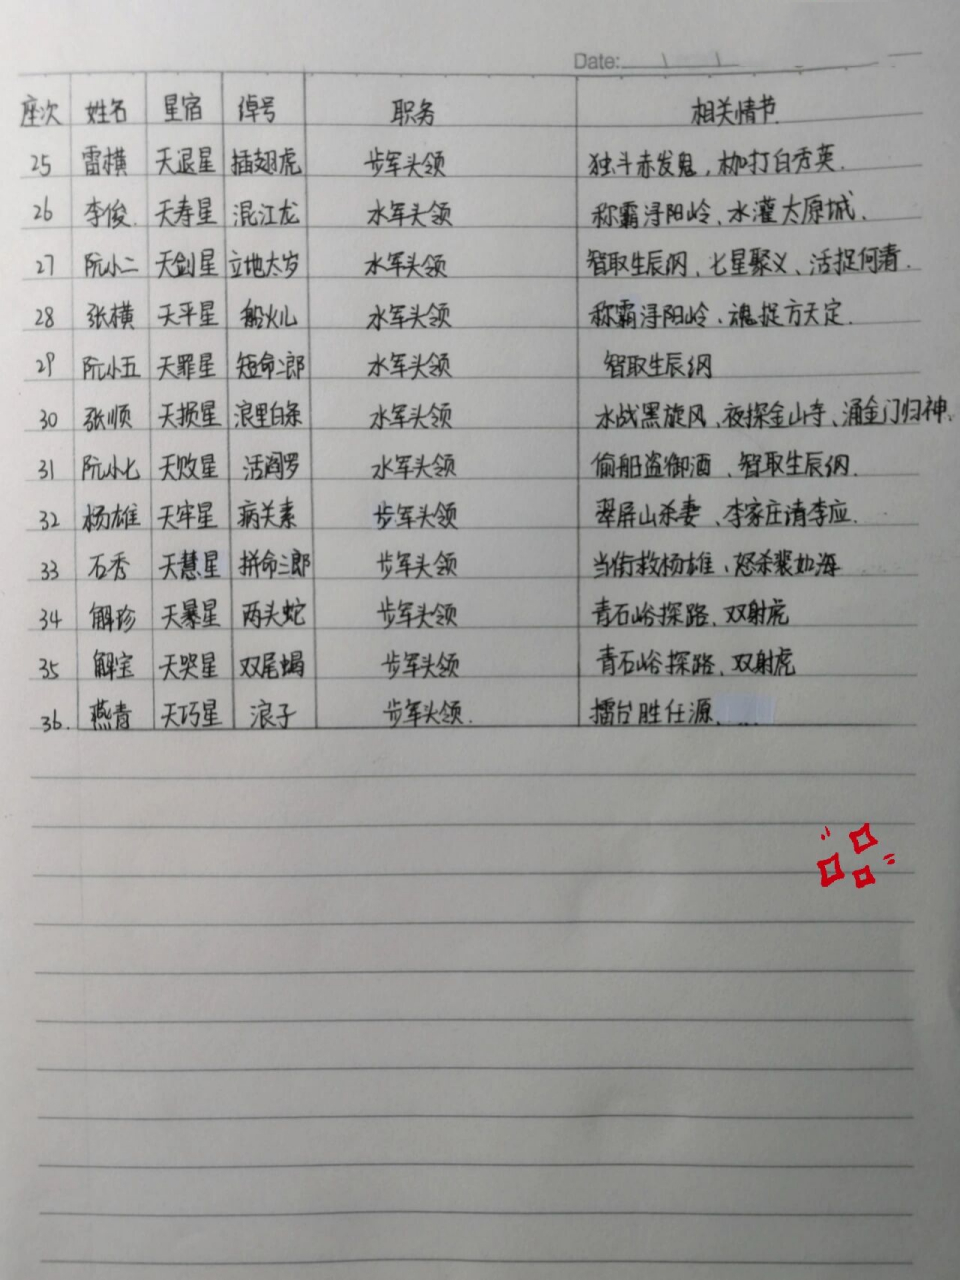 Date:
座次 姓名 星宿 绰号 职务 相关情节
25 雷横 天退星 插翅虎 步军头领 独斗赤发鬼，枷打白秀英.
26 李俊. 天寿星 混江龙 水军头领 称霸浔阳岭、水灌太原城.
27 阮小二 天剑星 立地太岁 水军头领 智取生辰纲、七星聚义、活捉何清.
28 张横 天平星 船火儿 水军头领 称霸浔阳岭、魂捉方天定.
29 阮小五 天罪星 短命二郎 水军头领 智取生辰纲
30 张顺 天损星 浪里白条 水军头领 水战黑旋风、夜探金山寺、涌金门归神.
31 阮小七 天败星 活阎罗 水军头领 偷船盗御酒、智取生辰纲.
32 杨雄 天牢星 病关索 步军头领 翠屏山杀妻、李家庄请李应.
33 石秀 天慧星 拼命三郎 步军头领 当街救杨雄、怒杀裴如海
34 解珍 天暴星 两头蛇 步军头领 青石峪探路、双射虎
35 解宝 天哭星 双尾蝎 步军头领 青石峪探路、双射虎
36. 燕青 天巧星 浪子 步军头领. 擂台胜任源、